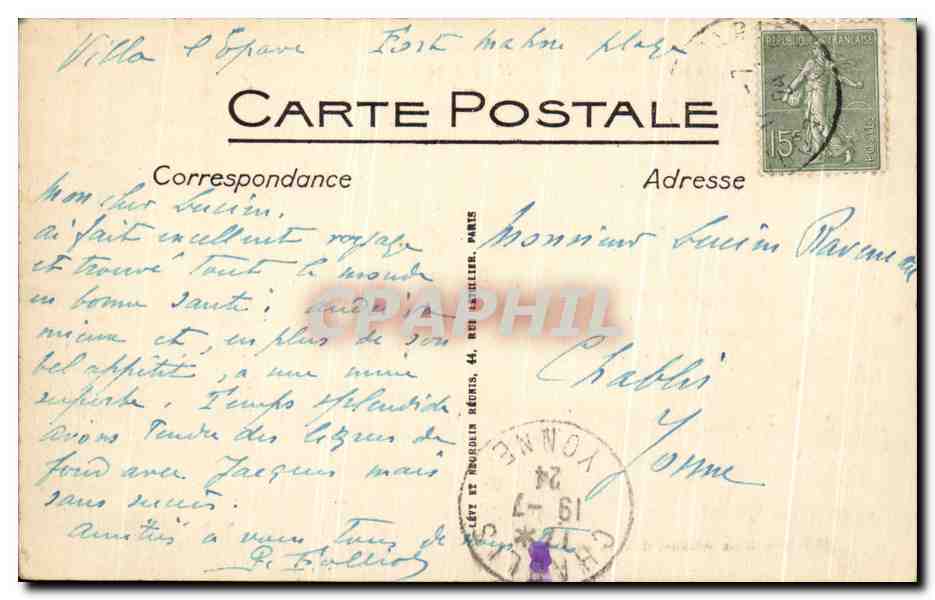 Villa l'Epave Fort Mahon plage
CARTE POSTALE
Correspondance
Adresse
REPUBLIQUE FRANÇAISE
15c
POSTES
Mon cher Lucien,
ai fait excellent voyage
et trouvé tout le monde
en bonne santé ; va
mieux et, en plus de son
bel appétit, a une mine
superbe. Temps splendide
avons tendu des lignes de
fond avec Jacques mais
sans succès.
Amitiés à vous tous de nous
LÉVY ET NEURDEIN RÉUNIS, 44, RUE LETELLIER, PARIS
Monsieur Lucien Raveneau
Chablis
Yonne
CHABLIS
19 -7
24
YONNE
CPAPHIL